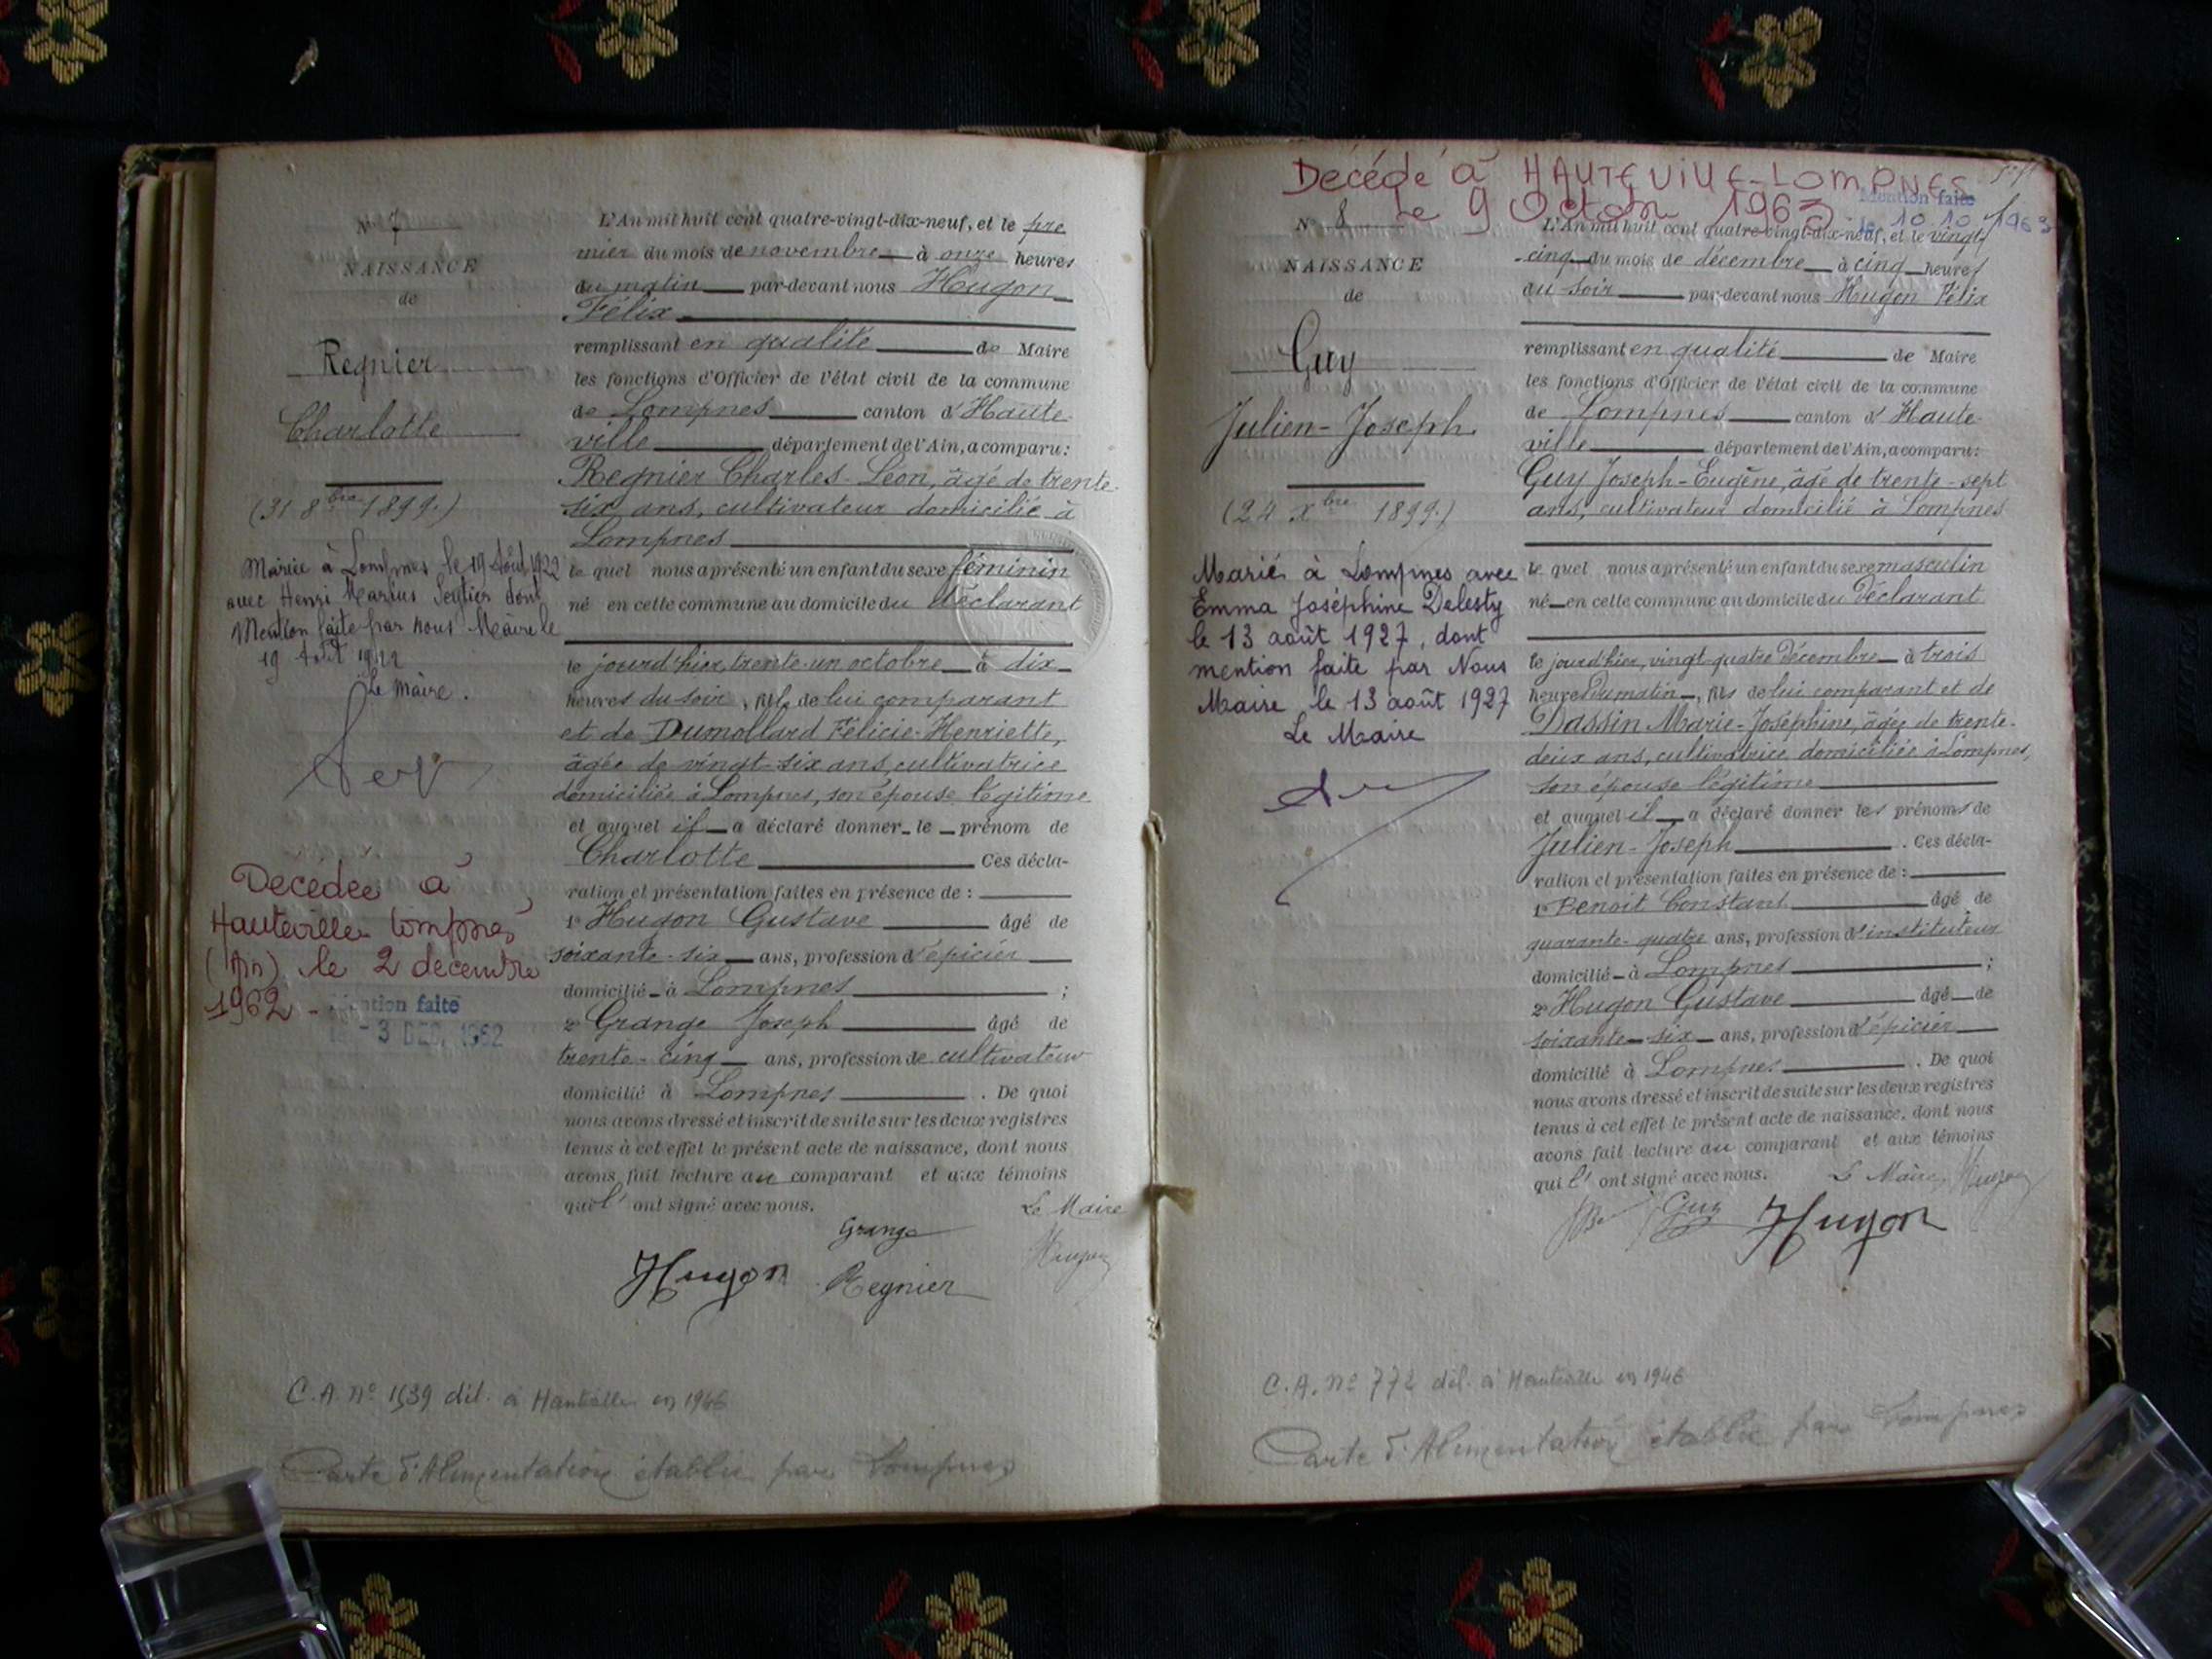 N° 7
NAISSANCE
de
Regnier
Charlotte
(31 8bre 1899.)
Mariée à Lompnes le 19 Août 1922
avec Henri Marius dont
Mention faite par nous Maire le
19 Août 1922
Le Maire.
Décédée à
Hauteville Lompnes
(Ain) le 2 décembre
1962 -
Mention faite
le - 3 DEC. 1962
L'An mil huit cent quatre-vingt-dix-neuf, et le pre
mier du mois de novembre à onze heures
du matin par-devant nous Hugon
Félix
remplissant en qualité de Maire
les fonctions d'Officier de l'état civil de la commune
de Lompnes canton d'Haute-
ville département de l'Ain, a comparu:
Regnier Charles-Léon, âgé de trente-
six ans, cultivateur domicilié à
Lompnes
le quel nous a présenté un enfant du sexe féminin
né en cette commune au domicile du déclarant
le jourd'hier, trente-un octobre à dix
heures du soir, fils de lui comparant
et de Dumollard Félicie-Henriette,
âgée de vingt-six ans, cultivatrice
domiciliée à Lompnes, son épouse légitime
et auquel il a déclaré donner le prénom de
Charlotte Ces décla-
ration et présentation faites en présence de :
1° Hugon Gustave âgé de
soixante-six ans, profession d'épicier
domicilié à Lompnes ;
2° Grange Joseph âgé de
trente-cinq ans, profession de cultivateur
domicilié à Lompnes . De quoi
nous avons dressé et inscrit de suite sur les deux registres
tenus à cet effet le présent acte de naissance, dont nous
avons fait lecture au comparant et aux témoins
qui l' ont signé avec nous.
Le Maire
Grange
Hugon
Hugon Regnier
C.A. N° 1539 dél. à Hauteville en 1946
Carte d'Alimentation établie par Lompnes
Décédé à HAUTEVILLE-LOMPNES
le 9 Octobre 1963
Mention faite
le 10 10 1963
N° 8
NAISSANCE
de
Guy
Julien-Joseph
(24 Xbre 1899.)
Marié à Lompnes avec
Emma Joséphine Delesty
le 13 août 1927, dont
mention faite par Nous
Maire le 13 août 1927
Le Maire
L'An mil huit cent quatre-vingt-dix-neuf, et le vingt
-cinq du mois de décembre à cinq heures
du soir par-devant nous Hugon Félix
remplissant en qualité de Maire
les fonctions d'Officier de l'état civil de la commune
de Lompnes canton d'Haute-
ville département de l'Ain, a comparu:
Guy Joseph-Eugène, âgé de trente-sept
ans, cultivateur domicilié à Lompnes
le quel nous a présenté un enfant du sexe masculin
né en cette commune au domicile du déclarant
le jourd'hier, vingt-quatre Décembre à trois
heures Du matin, fils de lui comparant et de
Dassin Marie-Joséphine, âgée de trente-
deux ans, cultivatrice domiciliée à Lompnes,
son épouse légitime
et auquel il a déclaré donner les prénoms de
Julien-Joseph . Ces décla-
ration et présentation faites en présence de :
1° Benoit Constant âgé de
quarante-quatre ans, profession d'instituteur
domicilié à Lompnes ;
2° Hugon Gustave âgé de
soixante-six ans, profession d'épicier
domicilié à Lompnes . De quoi
nous avons dressé et inscrit de suite sur les deux registres
tenus à cet effet le présent acte de naissance, dont nous
avons fait lecture au comparant et aux témoins
qui l' ont signé avec nous. Le Maire, Hugon
Guy Hugon
C.A. N° 772 dél. à Hauteville en 1946
Carte d'Alimentation établie par Lompnes